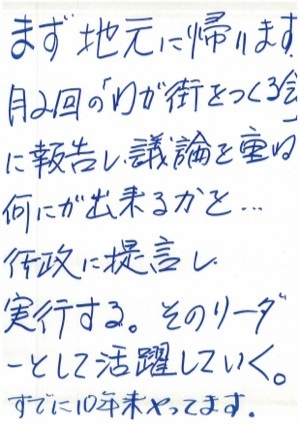 まず地元に帰ります
月2回の「わが街をつくる会
に報告し議論を重ね
何にが出来るかと…
行政に提言し
実行する。そのリーダ
ーとして活躍していく。
すでに10年来やってます.